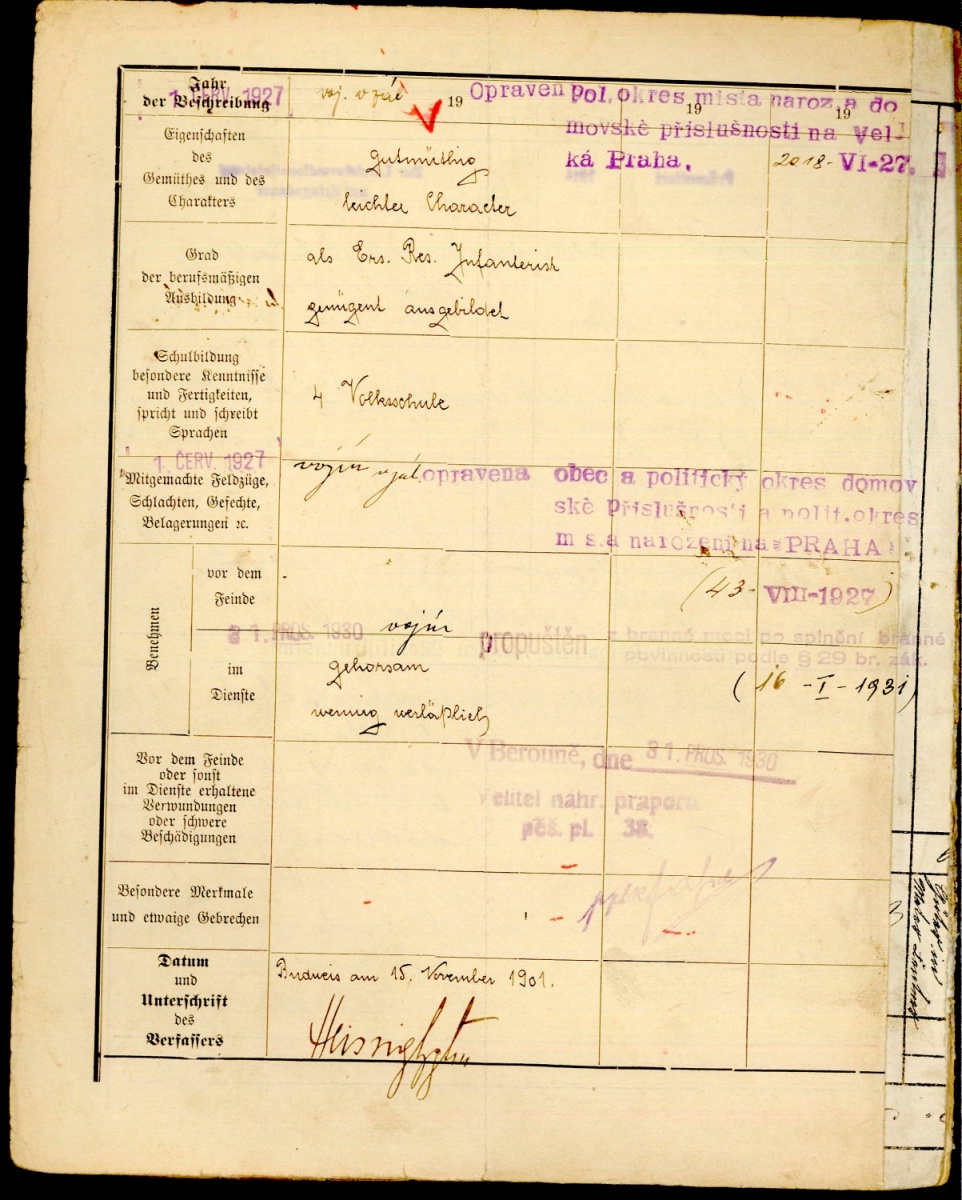 Jahr
der Beschreibung
1. ČERV. 1927
voj. v zál.
19
19
19
Opraven Pol. okres místa naroz. a do
movské příslušnosti na Vel-
ká Praha.
2018- VI-27.
Eigenschaften
des
Gemüthes und des
Charakters
gutmüthig
leichter Character
Grad
der berufsmäßigen
Ausbildung
als Ers. Res. Infanterist
genügent ausgebildet
Schulbildung
besondere Kenntnisse
und Fertigkeiten,
spricht und schreibt
Sprachen
4 Volksschule
1. ČERV. 1927
Mitgemachte Feldzüge,
Schlachten, Gefechte,
Belagerungen ꝛc.
opravena obec a politický okres domov
ské Příslušnosti a polit. okres
m s a narození na PRAHA
(43- VIII-1927)
Benehmen
vor dem
Feinde
31. PROS. 1930
propuštěn z branné moci po splnění branné
obvinnosti podle § 29 br. zák.
(16 - I - 1931)
im
Dienste
gehorsam
wenig verläßlich
Vor dem Feinde
oder sonst
im Dienste erhaltene
Verwundungen
oder schwere
Beschädigungen
V Berouně, dne 31. PROS. 1930
Velitel náhr. praporu
pěš. pl. 38.
Besondere Merkmale
und etwaige Gebrechen
Datum
und
Unterschrift
des
Verfassers
Budweis am 15. November 1901.